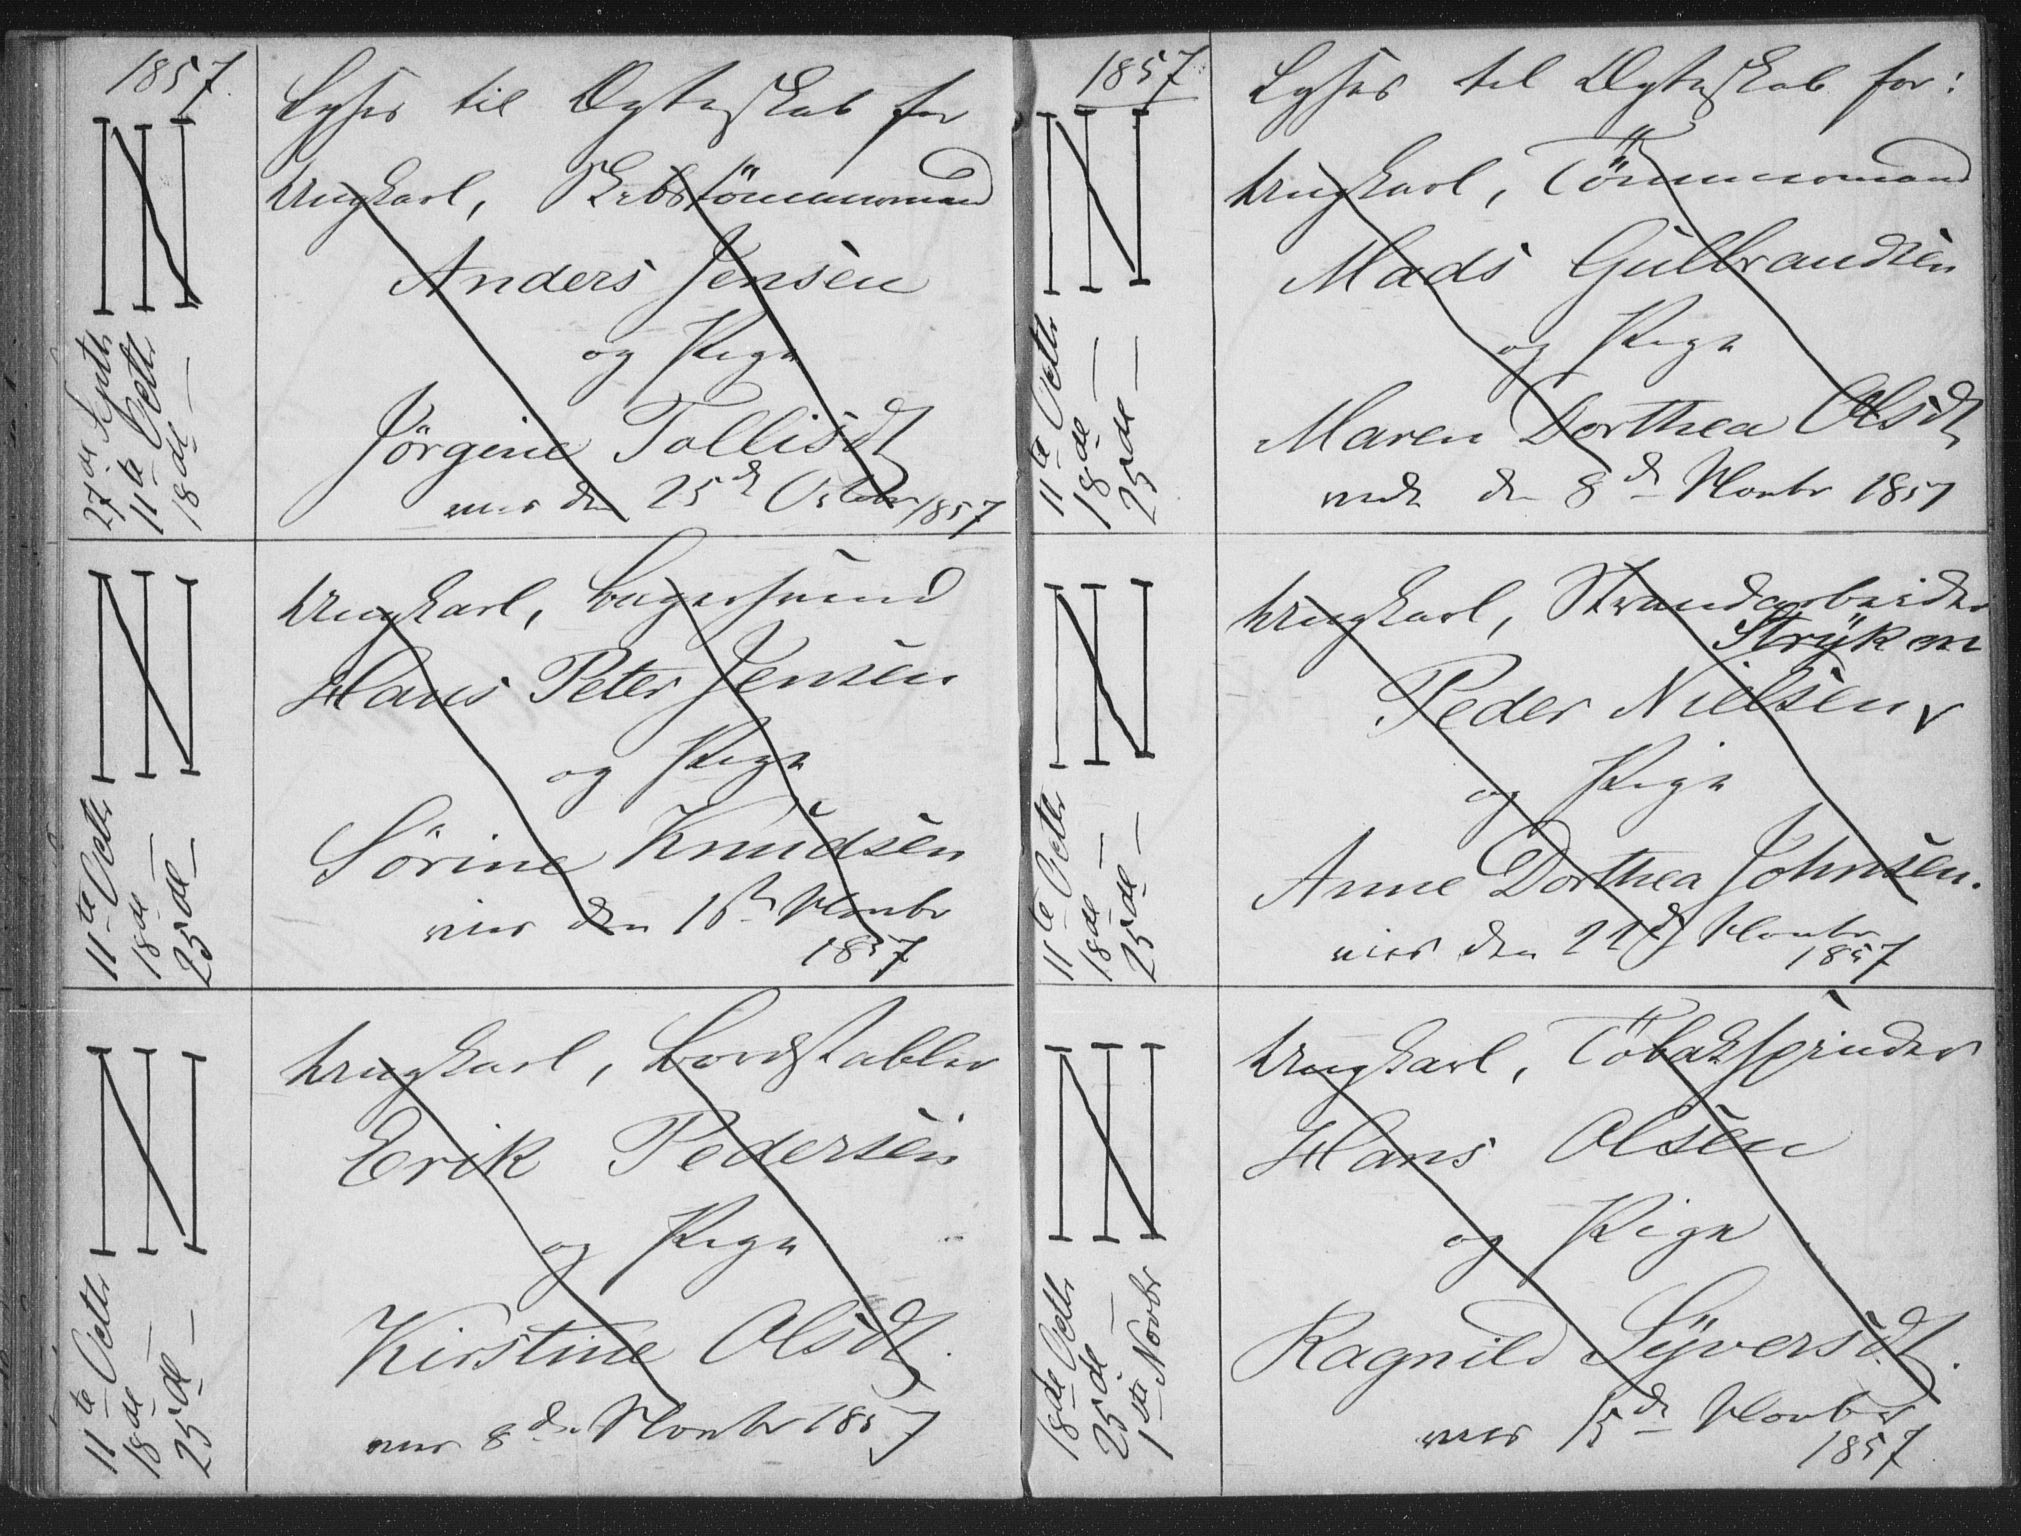 1857.
Lyses til Ægteskab for
Ungkarl, Skibstömmermand
Anders Jensen
og Pige
Jörgine Tollisdt
viet den 25de October 1857
27de Septbr
11te Octbr
18de —
Ungkarl, Bogersvend
Hans Peter Jensen
og Pige
Sörine Knudsen
viet den 15de Novbr
1857
11te Octbr
18de —
25de —
Ungkarl, Bordstabler
Erik Pedersen
og Pige
Kirstine Olsdt.
viet 8de Novbr 1857
11te Octbr
18de —
25de —
1857.
Lyses til Ægteskab for:
Ungkarl, Tömmermand
Mads Gulbrandsen
og Pige
Maren Dorthea Olsdt
den 8de Novbr 1857
11te Octbr
18de —
25de —
Ungkarl, Strandarbeider
Peder Nielsen
og Pige
Anne Dorthea Johnsen.
viet den 22de Novbr
1857
11te Octbr
18de —
25de —
Ungkarl, Tobakspinder
Hans Olsen
og Pige
Ragnild Syversdt.
viet 15de Novbr
1857
18de Octbr
25de —
1ste Novbr